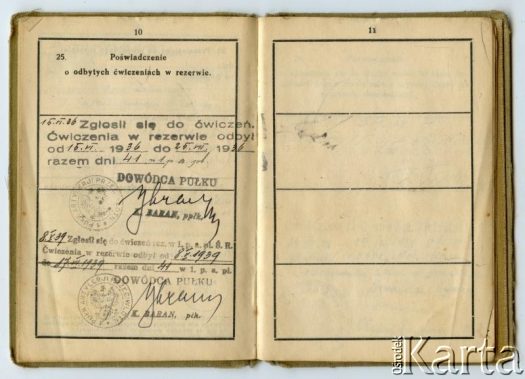 10
25. Poświadczenie
o odbytych ćwiczeniach w rezerwie.
15.VI.36 Zgłosił się do ćwiczeń.
Ćwiczenia w rezerwie odbył
od 15.VI. 1936 do 25.VII. 1936
razem dni 41
DOWÓDCA PUŁKU
K. BARAN, ppłk.
Zgłosił się do ćwiczeń rez. w 1. p. a. pl. S. R.
Ćwiczenia w rezerwie odbył od 1939
do 1939 razem dni 41 w 1. p. a. pl.
DOWÓDCA PUŁKU
K. BARAN, płk.
11
ośrodek
Karta